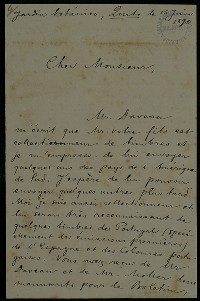 Jardin botanique, Quito le 15 Juin 1890
Cher Monsieur,
Mr. Daveau
m'écrit que Mr votre fils est
collectionneur de timbres et
je m'empresse de lui envoyer
quelques uns des pays de l'Amérique
du Sud. J'espère de lui pouvoir
envoyer quelques autres plus tard.
Moi je suis aussi collectionneur et
lui serais très reconnaissant de
quelques timbres de Portugal (spéci-
alement des émissions premières,
de l'Espagne et des Colonies portu-
gaises. Vous avez reçu de Mr.
Daveau et de Mr. Moller deux
manuscrits pour le Boletim